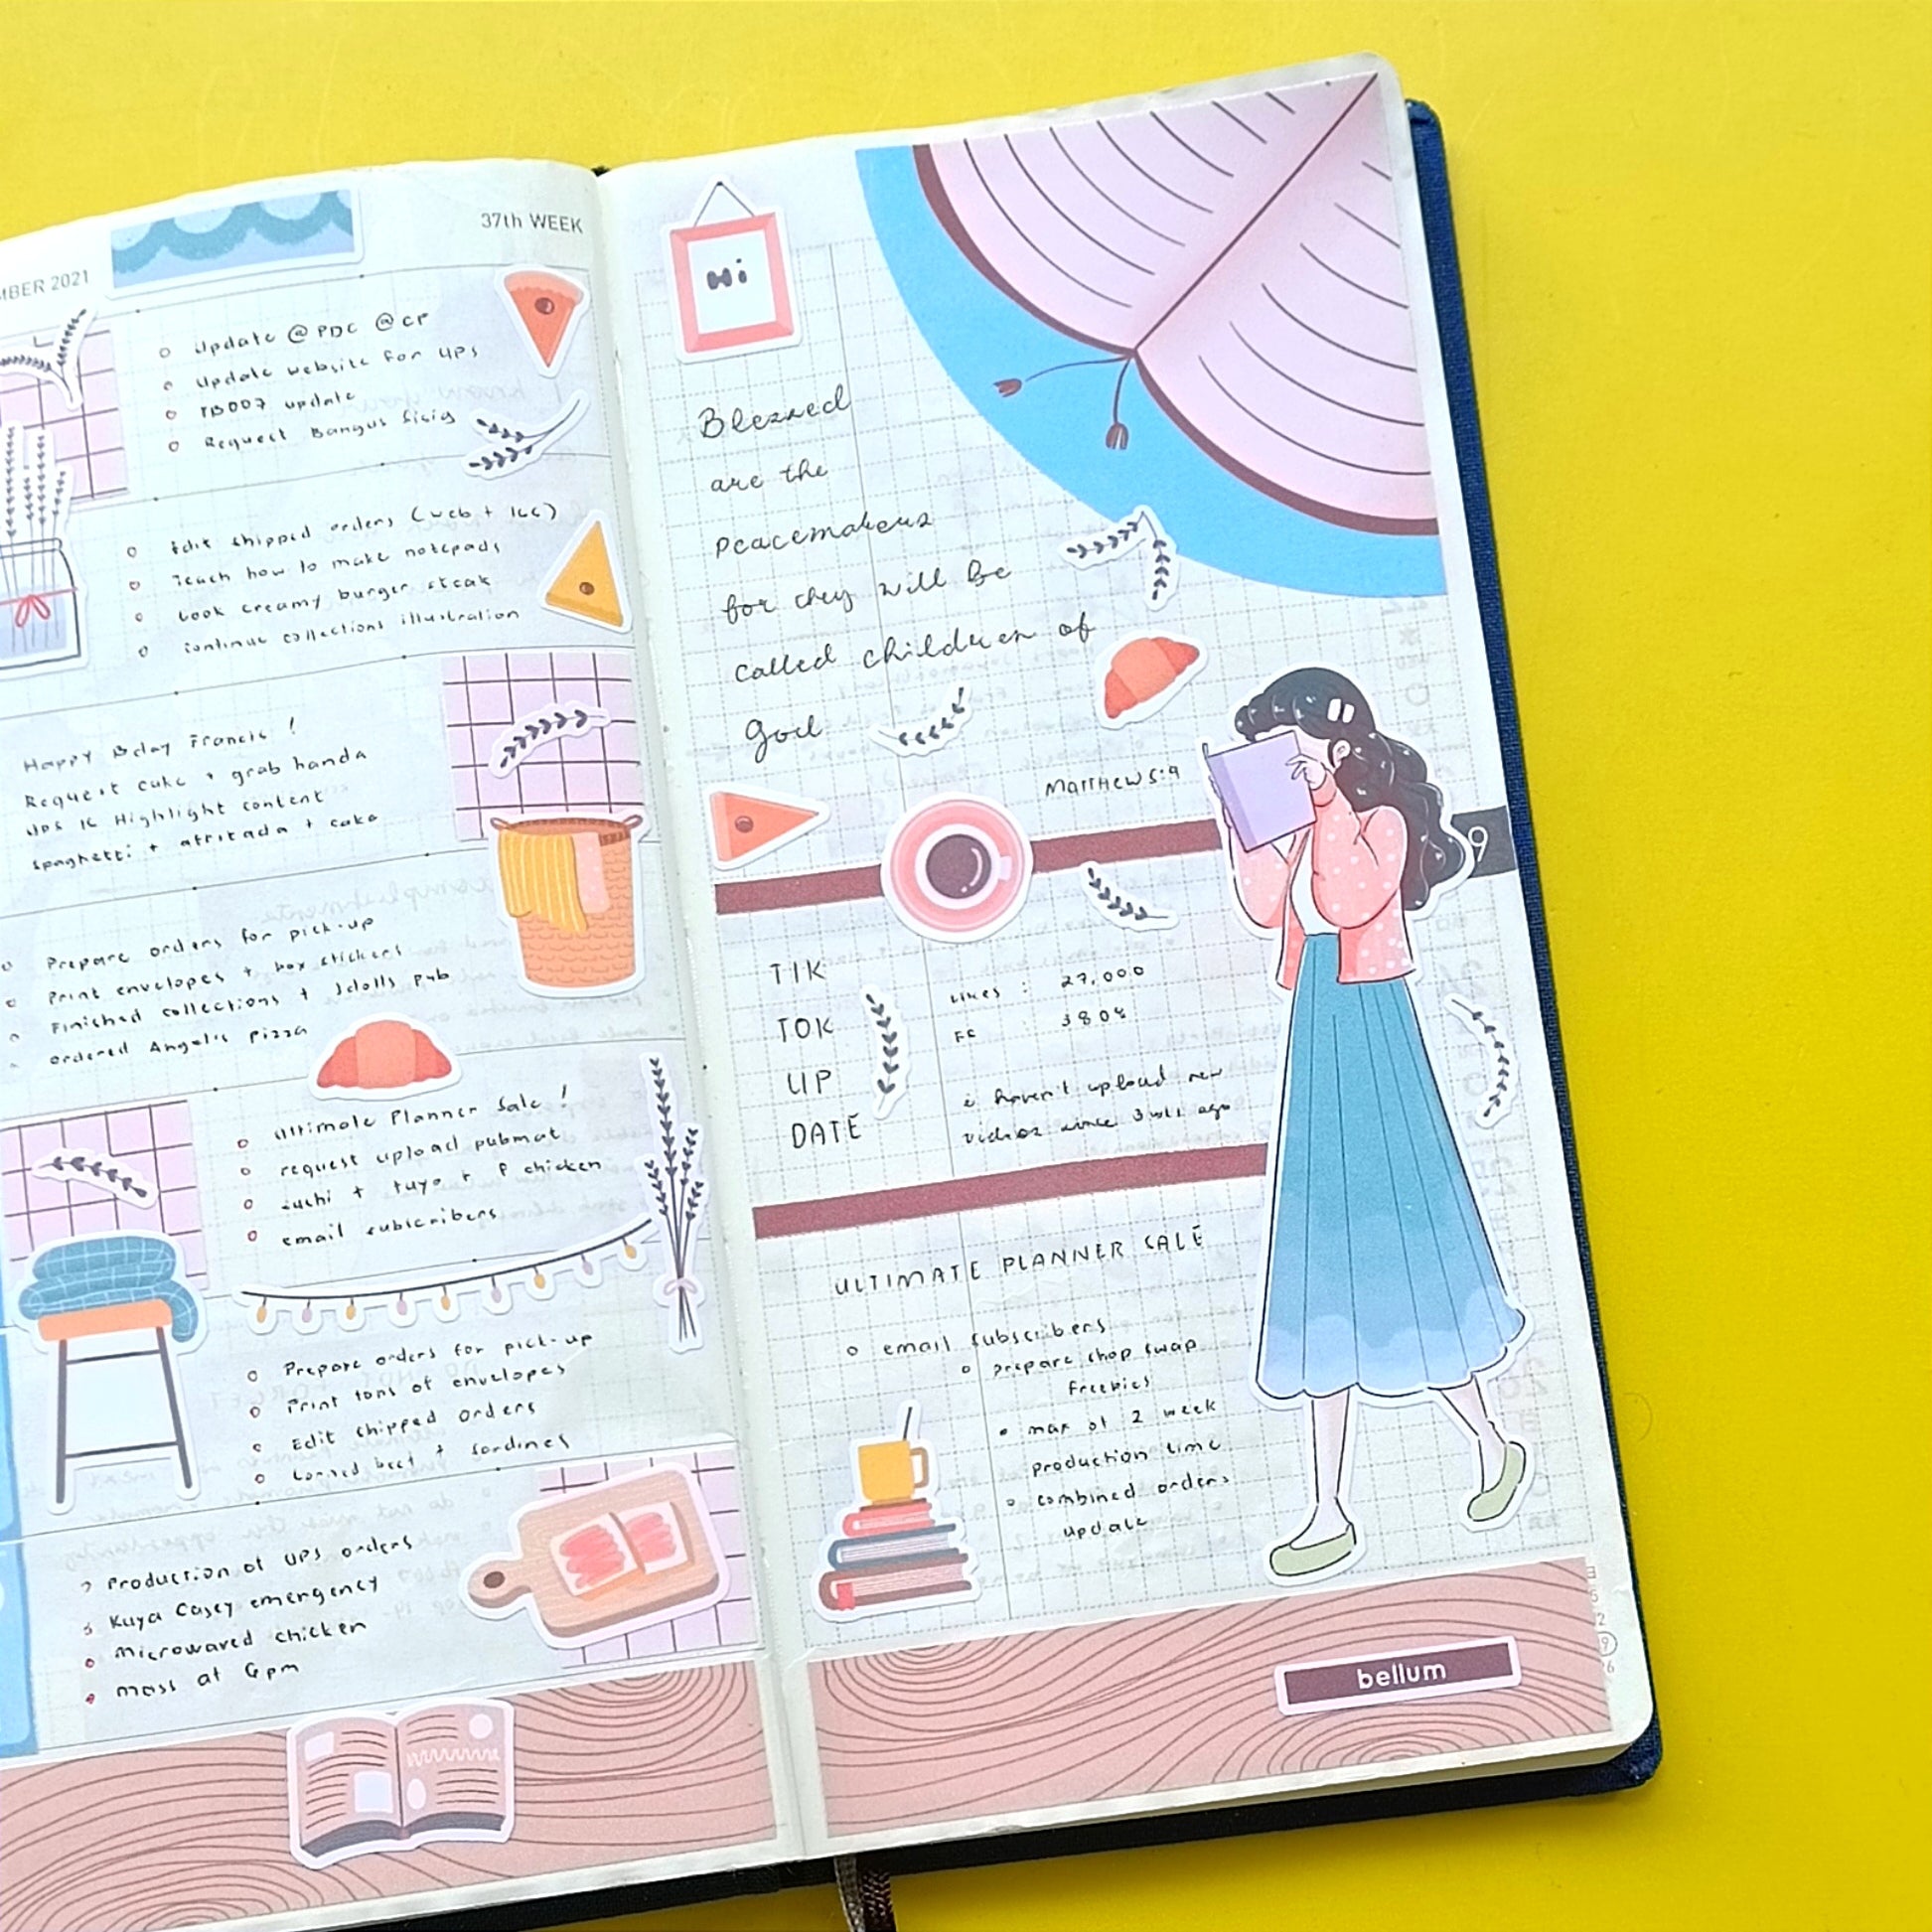 MBER 2021
37th WEEK
Update @ PDC @ CP
Update website for UPS
TB007 update
Request Bangus Sisig
Edit shipped orders (web + IGC)
Teach how to make notepads
Cook creamy burger steak
Continue collections illustration
Happy Bday Francis !
Request cake + grab handa
UPS IG Highlight content
Spaghetti + afritada + cake
Prepare orders for pick-up
Print envelopes + box stickers
Finished collections + Jdolls pub
ordered Angel's Pizza
Ultimate Planner Sale !
request upload pubmat
suchi + tuyo + P chicken
email subscribers
Prepare orders for pick-up
Print tons of envelopes
Edit shipped orders
Corned beef + Sardines
Production of UPS orders
Kuya Casey emergency
microwaved chicken
mass at 6pm
Hi
Blessed
are the
peacemakers
for they will be
called children of
God
MATTHEW 5:9
9
TIK
TOK
UP
DATE
Likes : 27,000
FC : 3808
i haven't upload new
videos since 3 wks ago
ULTIMATE PLANNER SALE
email subscribers
prepare shop swap
freebies
max of 2 week
production time
combined orders
update
bellum